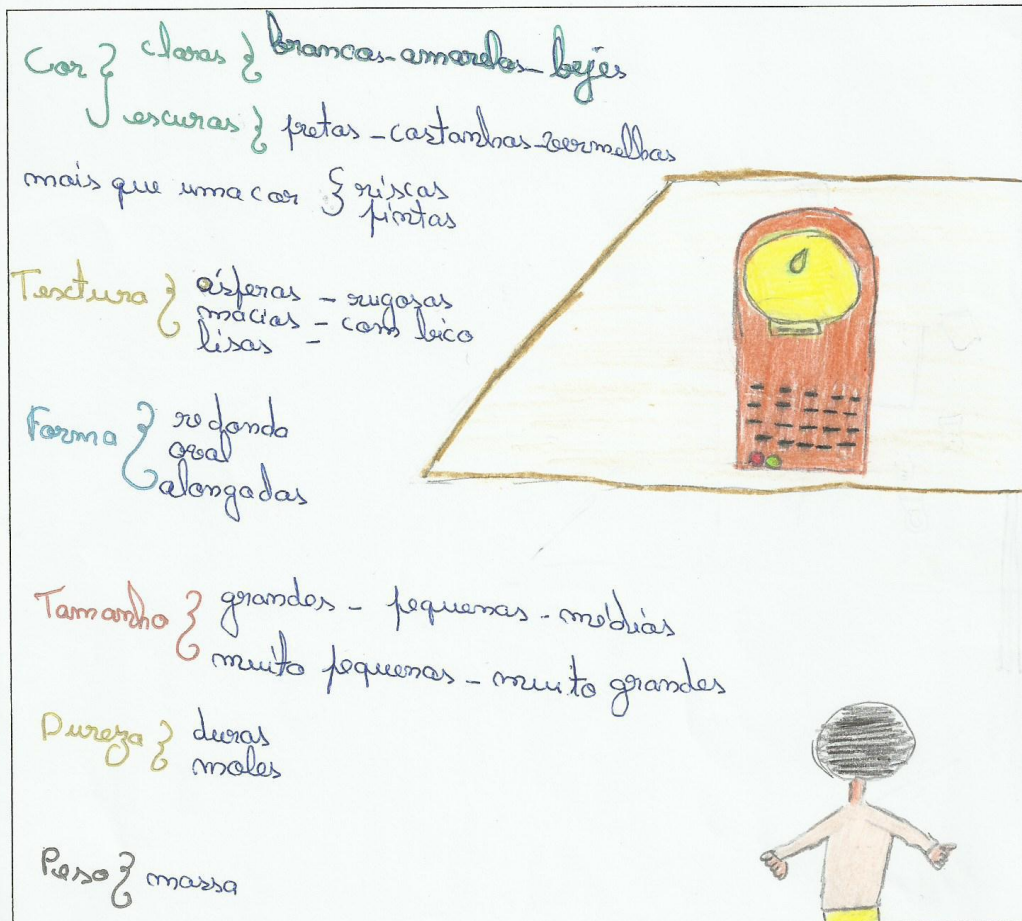 Cor } claras } brancas - amarelas - bejés
escuras } pretas - castanhas - vermelhas
mais que uma cor } riscas
pintas
Textura } ásferas - rugosas
macias - com bico
lisas -
Forma } redonda
oval
alongadas
Tamanho } grandes - pequenas - médias
muito pequenas - muito grandes
Dureza } duras
moles
Peso } massa